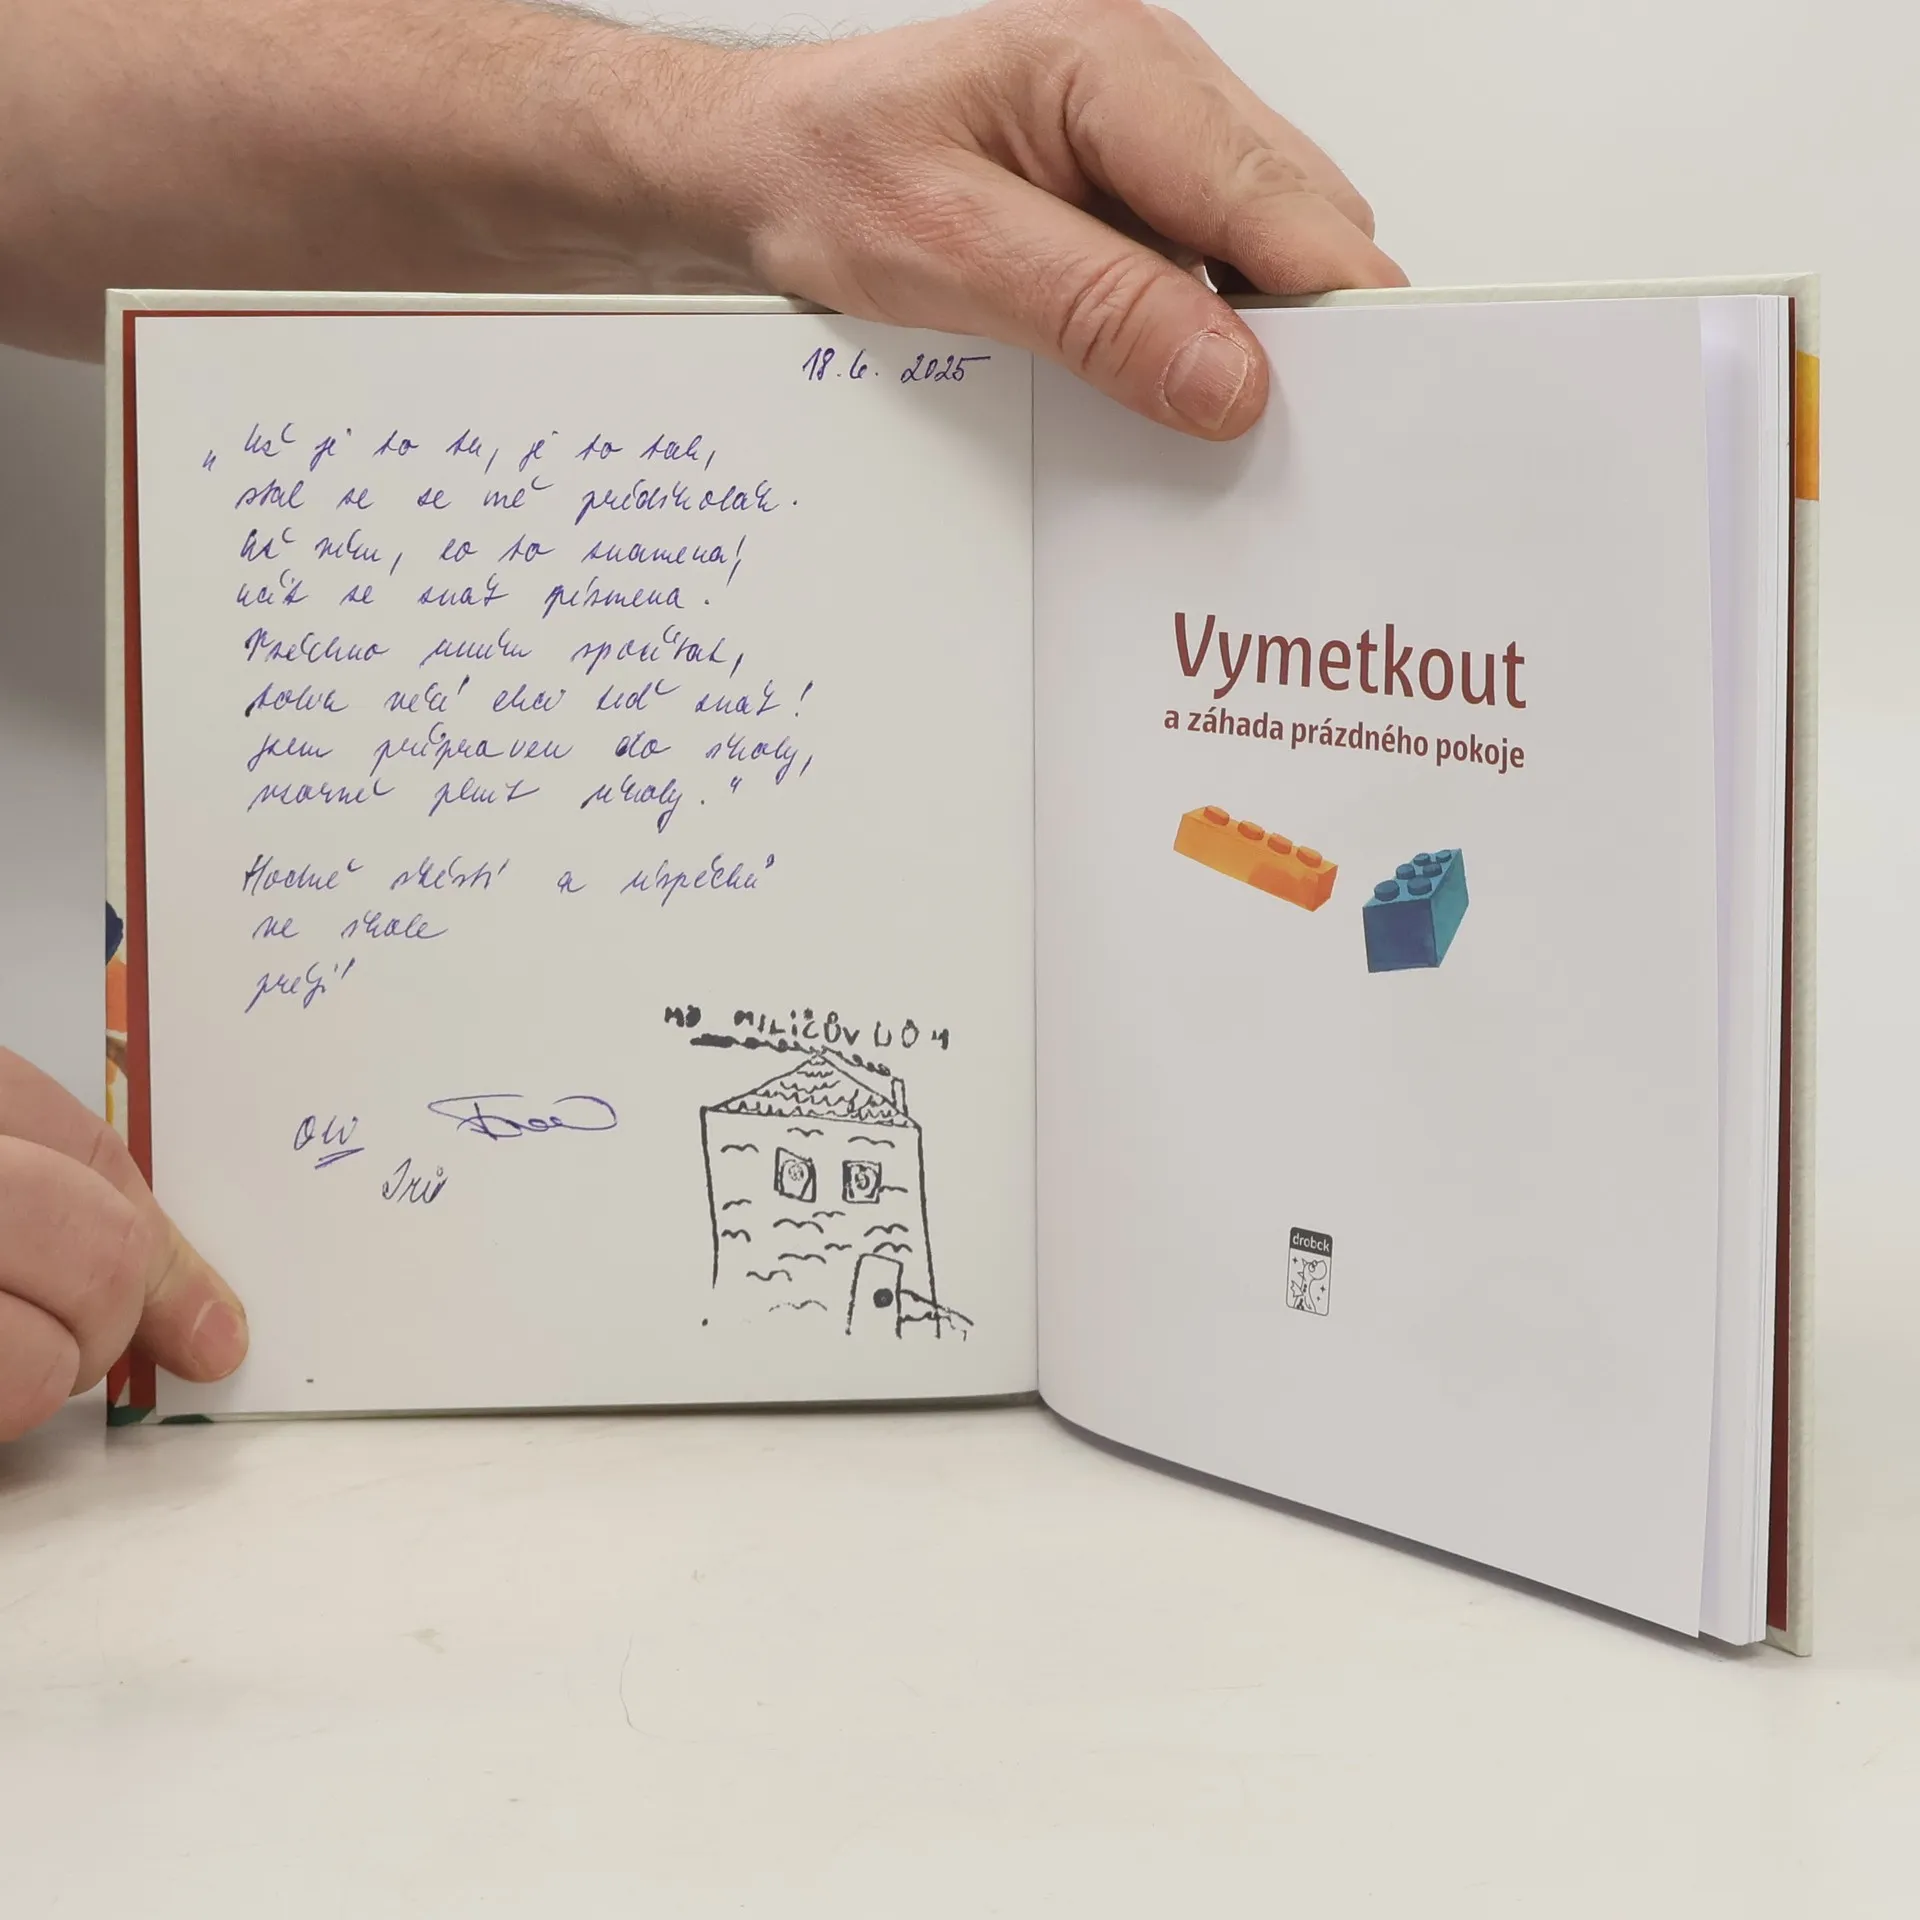 18.6. 2025
„Už je to tu, je to tak,
stal se ze mě předškolák.
Už vím, co to znamená,
učit se znát písmena.
Všechno umím spočítat,
tolik věcí chci teď znát!
Jsem připraven do školy,
vzorně plnit úkoly."
Hodně štěstí a úspěchů
ve škole
přejí
MŠ MILÍČŮV DŮM
Vymetkout
a záhada prázdného pokoje
drobek